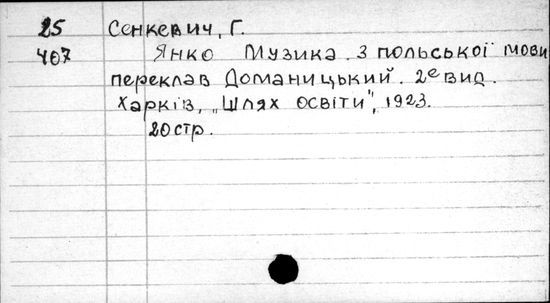 25 Сенкевич, Г.
407 Янко Музика. З польської мови
переклав Доманицький. 2е вид.
Харків, „Шлях освіти", 1923.
20 стр.